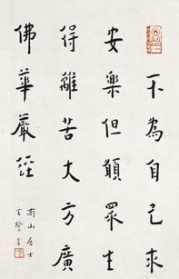 不為自己求
安樂但願眾生
得離苦大方廣
佛華嚴經
山居士